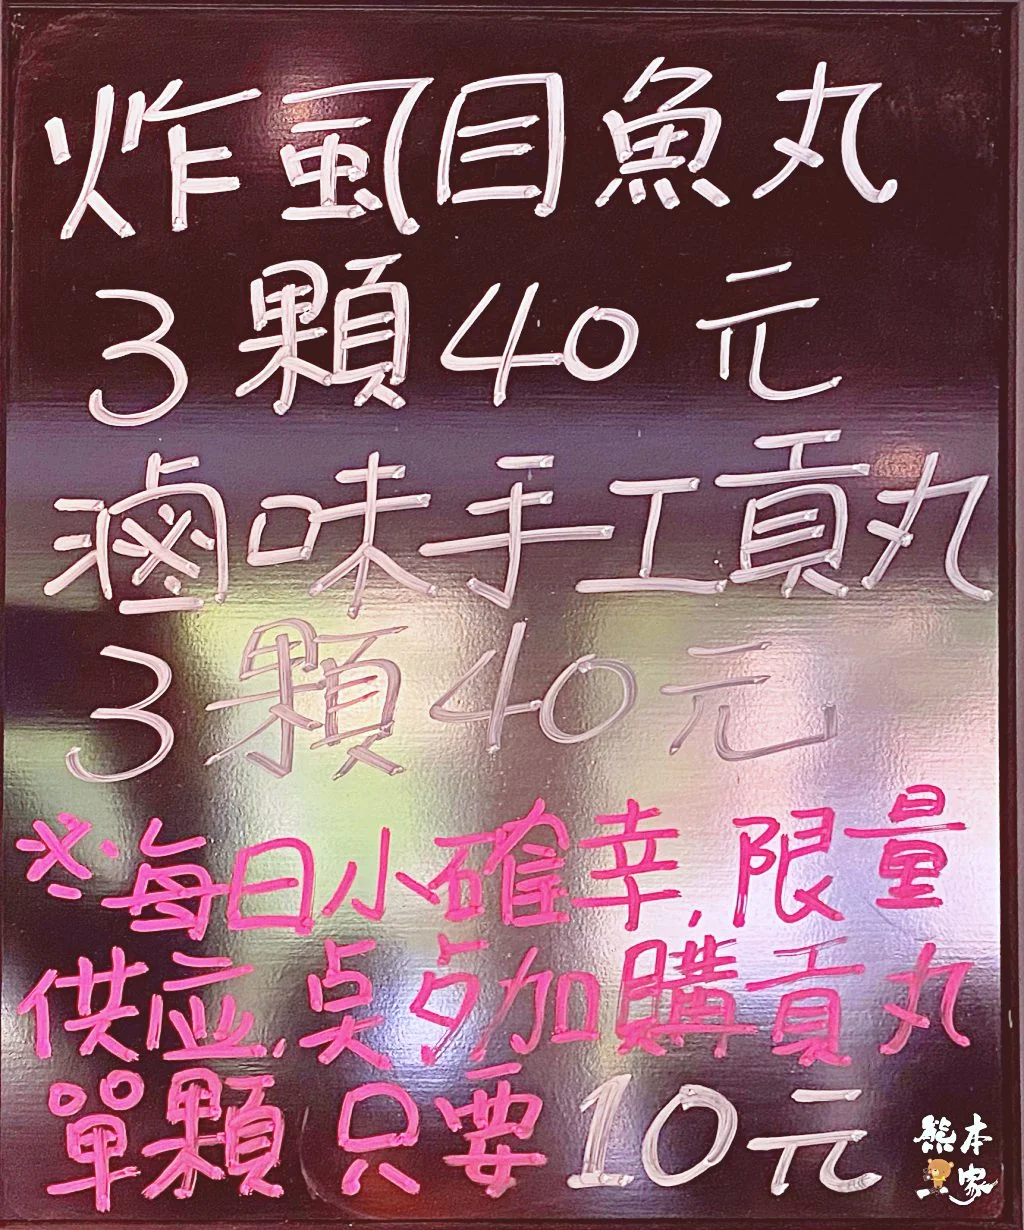 炸虱目魚丸
3顆40元
滷味手工貢丸
3顆40元
※每日小確幸,限量
供应,点 加購貢丸
單顆只要10元
熊本
一家